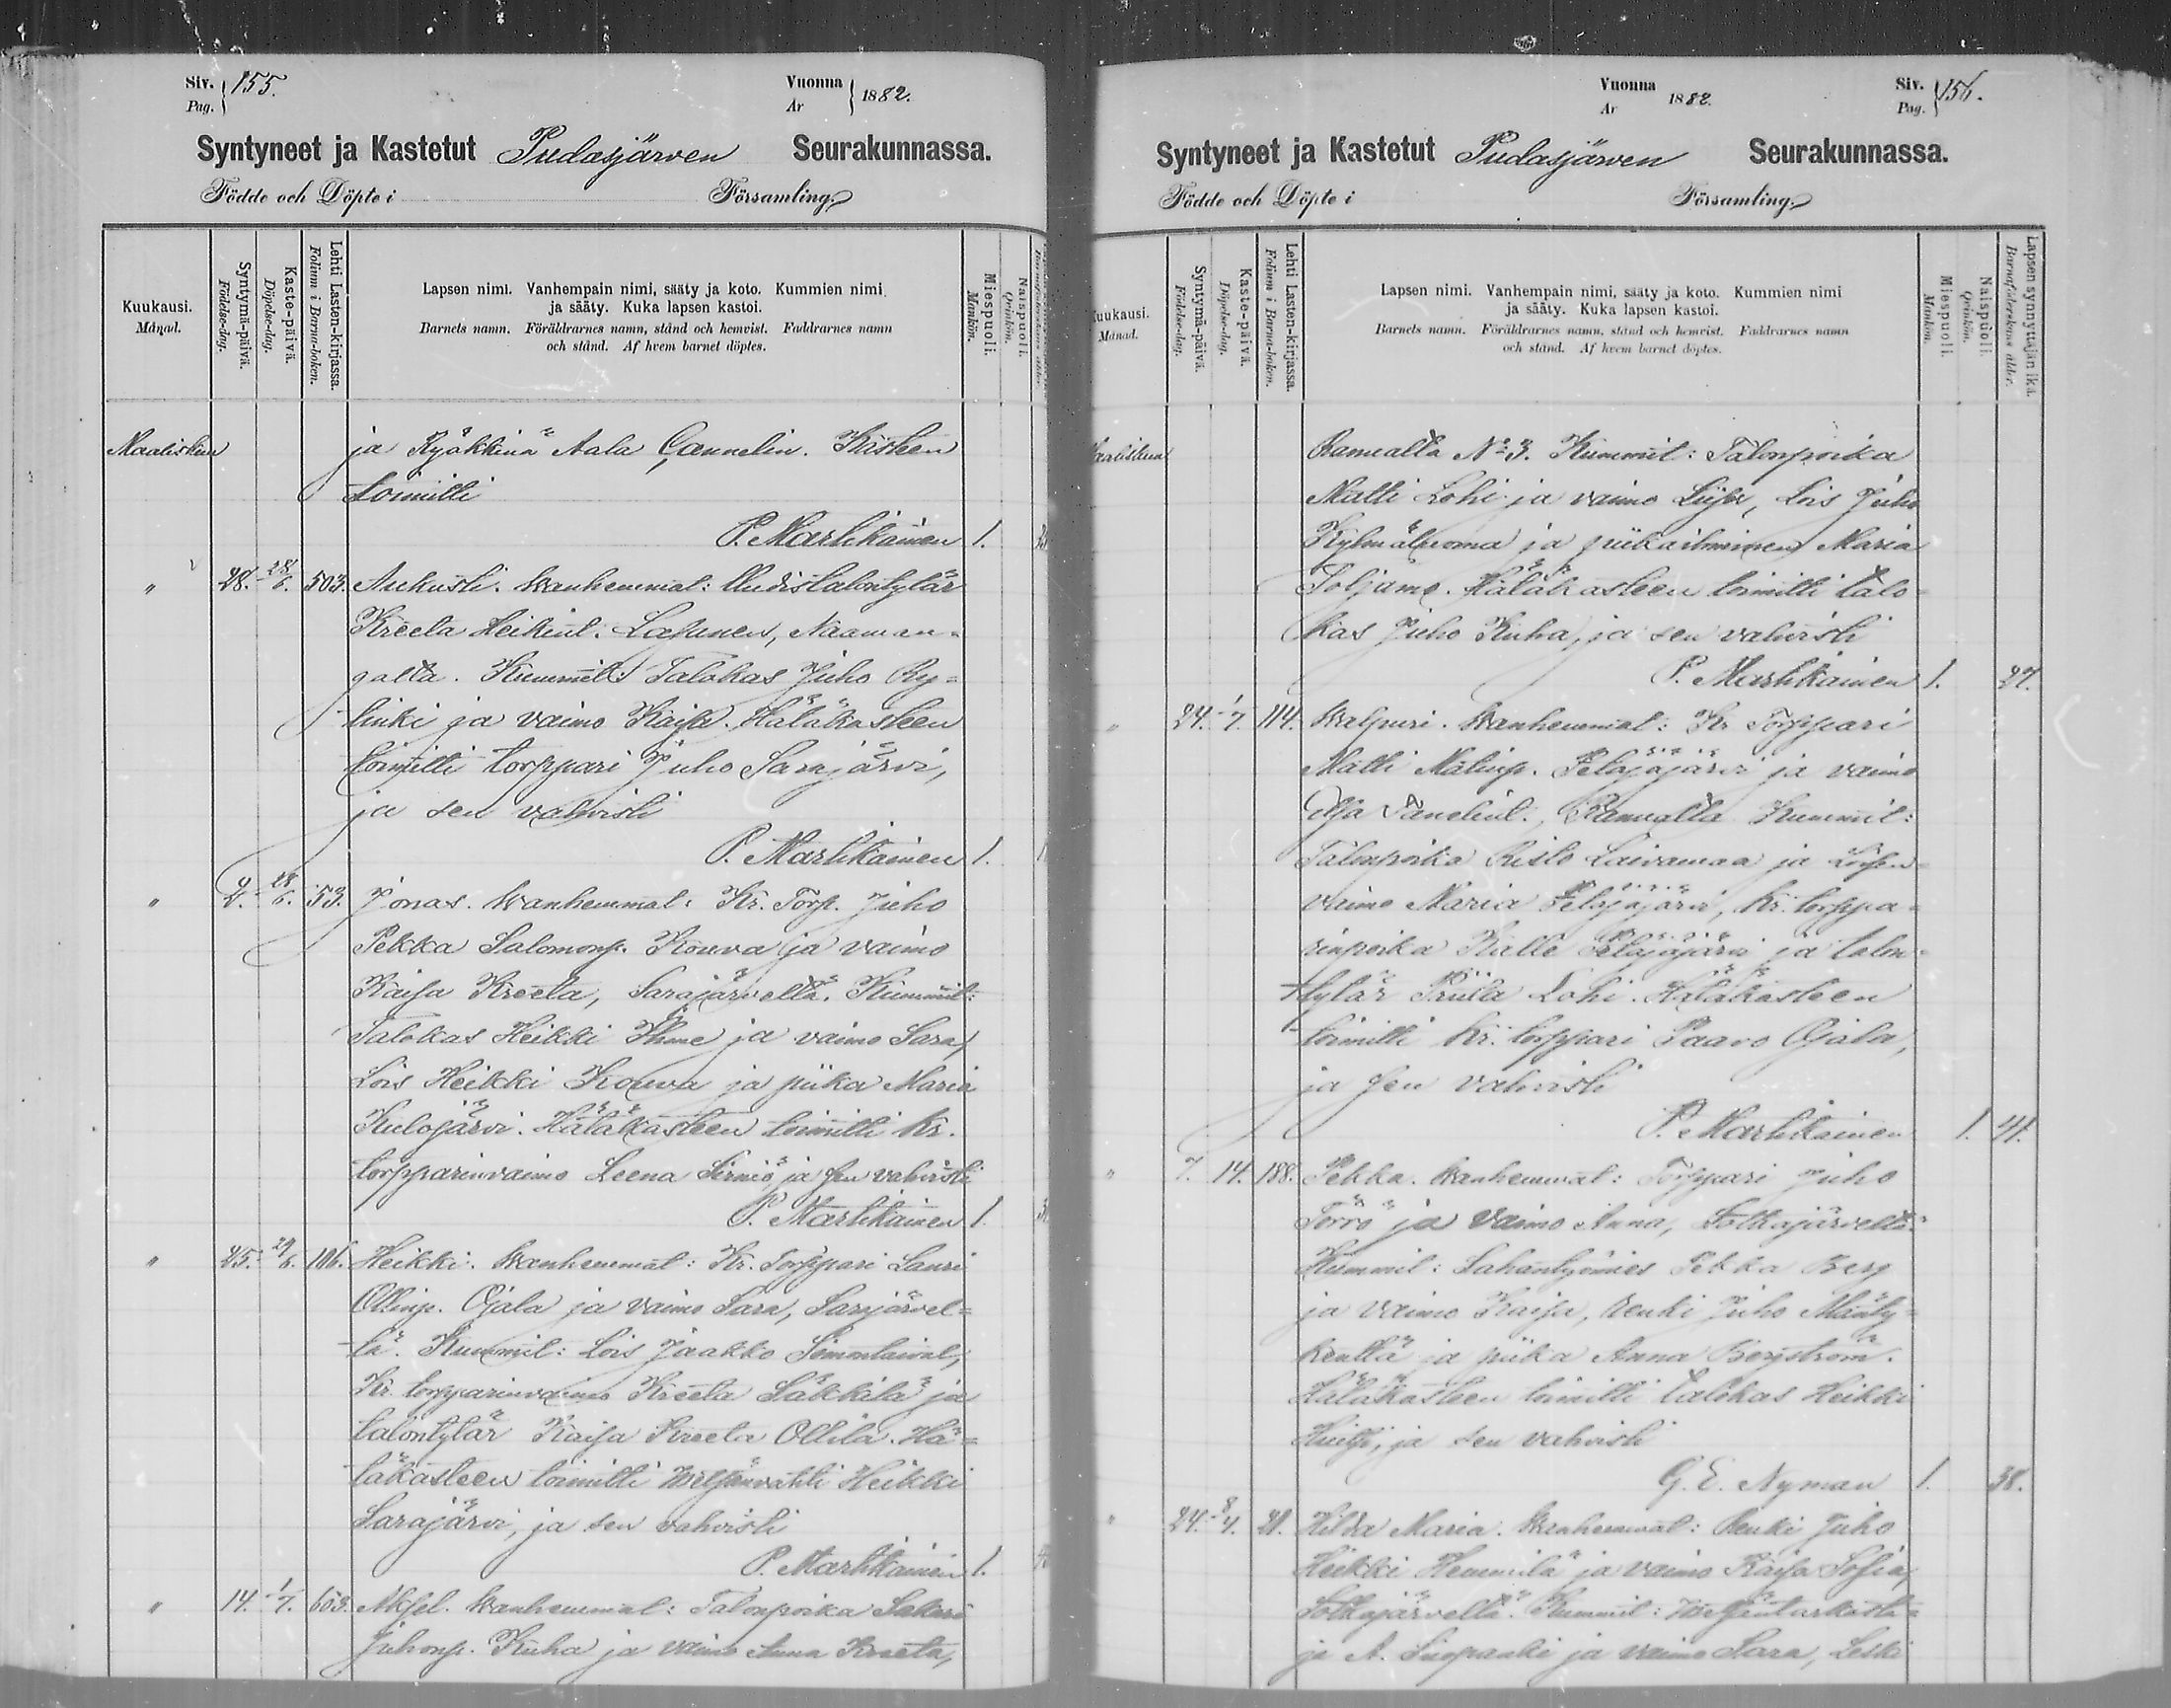 Siv. 155.
Pag.
Vuonna 1882.
Ar
Syntyneet ja Kastetut Pudasjärven Seurakunnassa.
Födde och Döpte i Församling.
Kuukausi.
Månad.
Syntymä-päivä.
Födelse-dag.
Kaste-päivä.
Döpelse-dag.
Lehti Lasten-kirjassa.
Folium i Barna-boken.
Lapsen nimi. Vanhempain nimi, sääty ja koto. Kummien nimi
ja sääty. Kuka lapsen kastoi.
Barnets namn. Föräldrarnes namn, stånd och hemvist. Faddrarnes namn
och stånd. Af hvem barnet döptes.
Miespuoli.
Mankön.
Naispuoli.
Qvinkön.
Maaliskuu ja Ryökkinä Aala Cannelin. Kasteen
toimitti
P. Marttikainen 1.
" 28. 28/6. 503. Aukusti. Wanhemmat: Uudistalontytär
Kreeta Heikint. Lapunen, Naaman-
galta. Kummit: Talokas Juho Ry-
tinki ja vaimo Kaisa. Hätäkasteen
toimitti torppari Juho Sarajärvi,
ja sen vahvisti
P. Marttikainen 1.
" 2. 28/6. 53. Jonas. Wanhemmat: Kr. Torp. Juho
Pekka Salomonp. Kouva ja vaimo
Kaisa Kreeta, Sarajärveltä. Kummit:
Talokas Heikki Ihme ja vaimo Sara,
Lois Heikki Kouva ja piika Maria
Kulojärvi. Hätäkasteen toimitti Kr.
torpparinvaimo Leena Sirniö, ja sen vahvisti
P. Marttikainen 1.
" 25. 29/6. 106. Heikki. Wanhemmat: Kr. Torppari Lauri
Ollinp. Ojala ja vaimo Sara, Sarajärvel-
tä. Kummit: Lois Jaakko
Kr. torpparinvaimo Kreeta Säkkilä ja
talontytär Kaisa Kreeta Ollila. Hä-
täkasteen toimitti Metsänvahti Heikki
Sarajärvi, ja sen vahvisti
P. Marttikainen 1.
" 14. 1/7. 603. Aksel. Wanhemmat: Talonpoika Sakari
Juhonp. Kuha ja vaimo Anna Kreeta,
Vuonna 1882.
Ar
Siv. 156.
Pag.
Syntyneet ja Kastetut Pudasjärven Seurakunnassa.
Födde och Döpte i Församling.
Kuukausi.
Månad.
Syntymä-päivä.
Födelse-dag.
Kaste-päivä.
Döpelse-dag.
Lehti Lasten-kirjassa.
Folium i Barna-boken.
Lapsen nimi. Vanhempain nimi, sääty ja koto. Kummien nimi
ja sääty. Kuka lapsen kastoi.
Barnets namn. Föräldrarnes namn, stånd och hemvist. Faddrarnes namn
och stånd. Af hvem barnet döptes.
Miespuoli.
Mankön.
Naispuoli.
Qvinkön.
Lapsen synnyttäjän ikä.
Barnaföderskans ålder.
Maaliskuu Ranualta No 3. Kummit: Talonpoika
Matti Lohi ja vaimo Liisa, Lois Juho
Kylmäluoma ja piikaihminen Maria
Toljamo. Hätäkasteen toimitti talo-
kas Juho Kuha, ja sen vahvisti
P. Marttikainen 1. 27.
" 24. 1/7. 114. Walpuri. Wanhemmat: Kr. Torppari
Matti Matinp. Petäjäjärvi ja vaimo
Elsa Tanelint., Ranualta Kummit:
Talonpoika Risto Laivamaa ja Loisen-
vaimo Maria Petäjäjärvi, Kr. torppa-
rinpoika Kalle Petäjäjärvi ja talon-
tytär Priita Lohi. Hätäkasteen
toimitti Kr. torppari Paavo Ojala,
ja sen vahvisti
P. Marttikainen 1. 41.
" 7. 14. 188. Pekka. Wanhemmat: Torppari Juho
Törrö ja vaimo Anna, Sotkajärveltä.
Kummit: Sahantyömies Pekka Berg
ja vaimo Kaisa, renki Juho Mänty-
kenttä ja piika Anna Bergström.
Hätäkasteen toimitti talokas Heikki
ja sen vahvisti
G. E. Nyman 1. 38.
" 24. 8/4. 21. Hilda Maria. Wanhemmat: Renki Juho
Heikki Hemmilä ja vaimo Kaisa Sofia,
Sotkajärveltä. Kummit: Metsäntarkasta-
ja A. Suopanki ja vaimo Sara, Leski